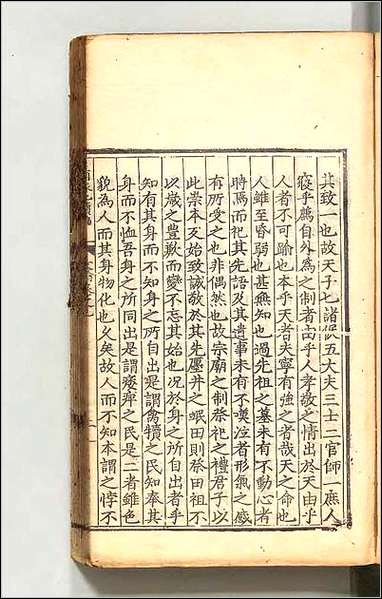 其致一也故天子七諸侯五大夫三士二官師一庶人
寢乎薦自外爲之制者由乎人孝敬之情出於天由乎
人者不可踰也本乎天者夫寧有強之者哉天之命也
人雖至昏弱也甚無知也過先祖之墓未有不動心者
時焉而祀其先語及其遺事未有不嘆泣者形氣之感
有所受之也非偶然也故宗廟之制祭祀之禮君子以
此崇本反始致誠敬於其先壟井之氓田則祭田祖不
以歲之豐歉而變不忘其始也况於身之所自出者乎
知有其身而不知身之所自出是謂禽犢之民知奉其
身而不恤吾身之所同出是謂痿痹之民是二者雖色
貌爲人而其身物化也久矣故人而不知本謂之悖不